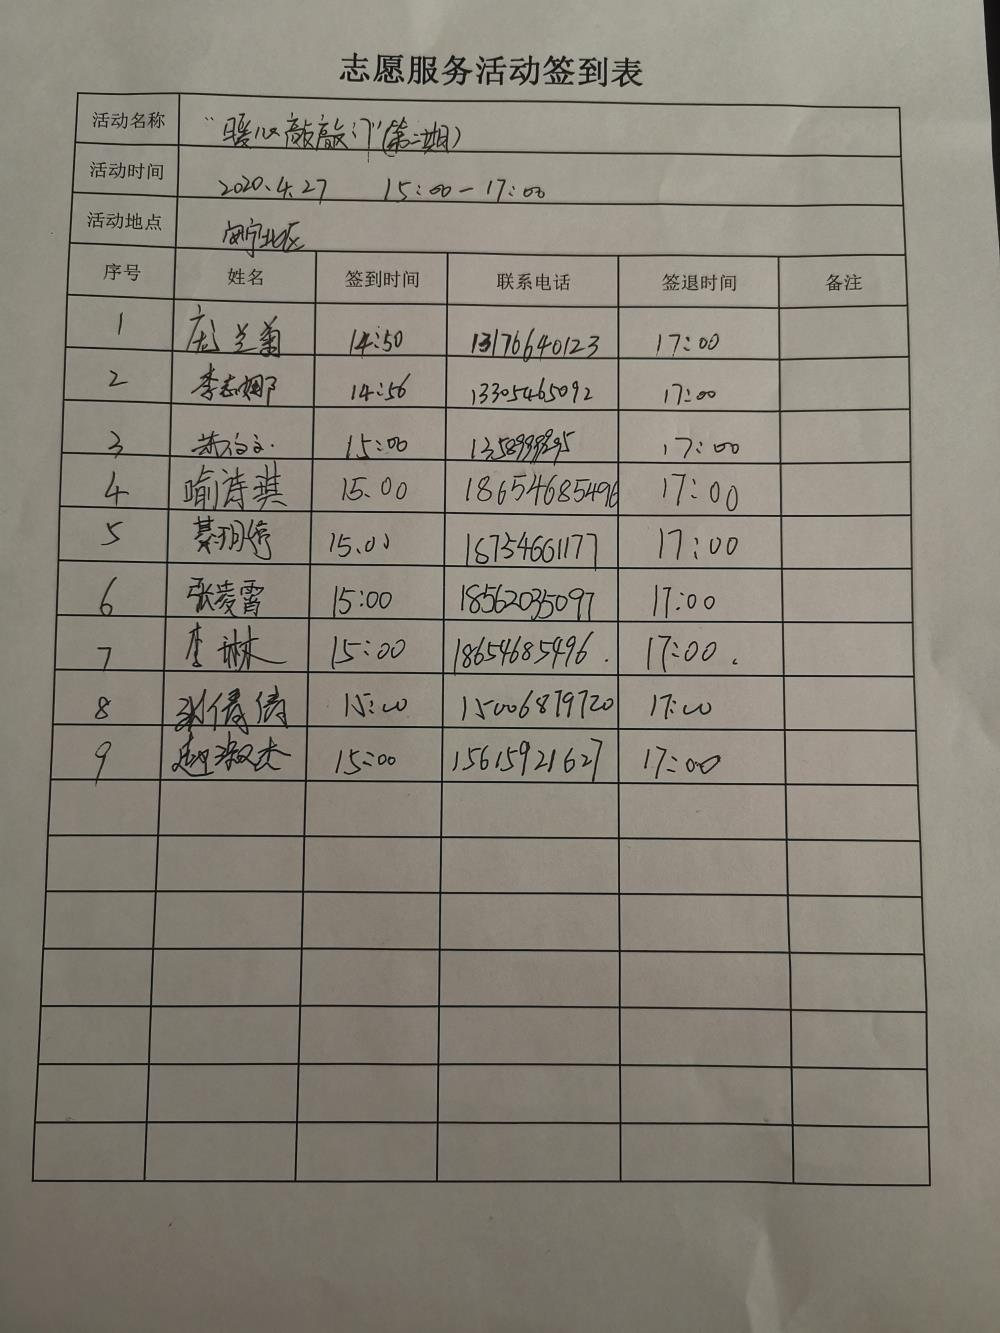 志愿服务活动签到表
活动名称 "暖心敲敲门"(第二期)
活动时间 2020.4.27 15:00-17:00
活动地点
序号 姓名 签到时间 联系电话 签退时间 备注
1 庞兰菊 14:50 13176640123 17:00
2 李志娜 14:56 13305465092 17:00
3 15:00 17:00
4 喻诗琪 15.00 18654685496 17:00
5 綦玥婷 15.00 18754661177 17:00
6 张凌霄 15:00 18562035097 17:00
7 李琳 15:00 18654685496. 17:00.
8 张倩倩 15:00 15006879720 17:00
9 赵淑杰 15:00 15615921627 17:00